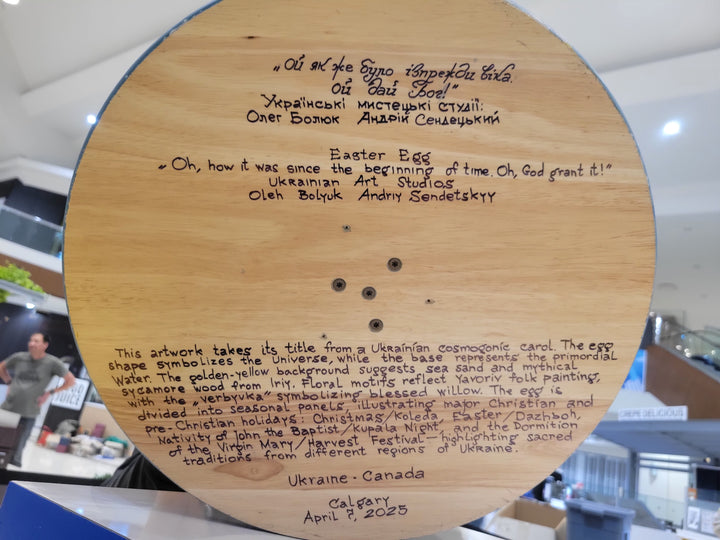 „Ой як же було ізпрежди віка.
Ой дай Бог!"
Українські мистецькі студії:
Олег Болюк Андрій Сендецький
Easter Egg
„Oh, how it was since the beginning of time. Oh, God grant it!"
Ukrainian Art Studios
Oleh Bolyuk Andriy Sendetskyy
This artwork takes its title from a Ukrainian cosmogonic carol. The egg
shape symbolizes the Universe, while the base represents the primordial
Water. The golden-yellow background suggests sea sand and mythical
sycamore wood from Iriy. Floral motifs reflect Yavoriv folk painting,
with the „verbyuka" symbolizing blessed willow. The egg is
divided into seasonal panels, illustrating major Christian and
pre-Christian holidays: Christmas/Koleda, Easter/Dazhboh,
Nativity of John the Baptist/Kupala Night, and the Dormition
of the Virgin Mary/Harvest Festival—highlighting sacred
traditions from different regions of Ukraine.
Ukraine - Canada
Calgary
April 7, 2025
CREPE DELICIOUS